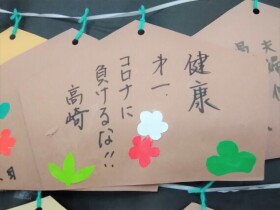 健康
第一
コロナに
負けるな!!
高崎
月